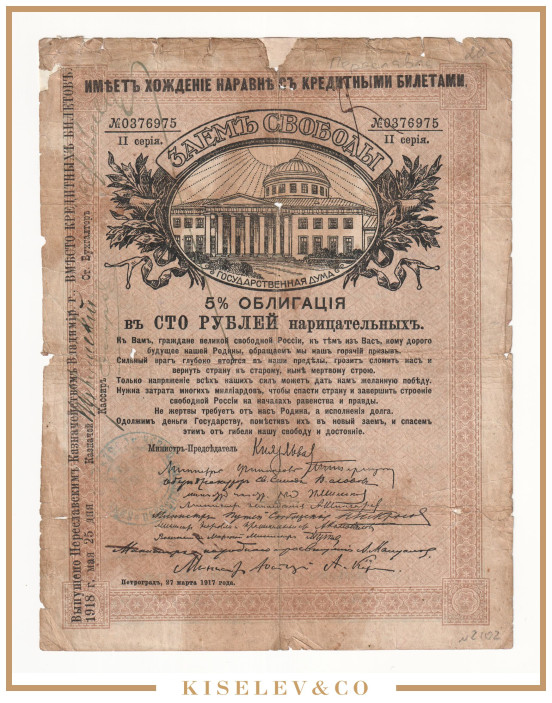 ИМѢЕТЪ ХОЖДЕНІЕ НАРАВНѢ СЪ КРЕДИТНЫМИ БИЛЕТАМИ.
№0376975
II серія.
№0376975
II серія.
ЗАЕМЪ СВОБОДЫ
ГОСУДАРСТВЕННАЯ ДУМА
5% ОБЛИГАЦІЯ
въ СТО РУБЛЕЙ нарицательныхъ.
Къ Вамъ, граждане великой свободной Россіи, къ тѣмъ изъ Васъ, кому дорого
будущее нашей Родины, обращаемъ мы нашъ горячій призывъ.
Сильный врагъ глубоко вторгся въ наши предѣлы, грозитъ сломить насъ и
вернуть страну къ старому, нынѣ мертвому строю.
Только напряженіе всѣхъ нашихъ силъ можетъ дать намъ желанную побѣду.
Нужна затрата многихъ милліардовъ, чтобы спасти страну и завершить строеніе
свободной Россіи на началахъ равенства и правды.
Не жертвы требуетъ отъ насъ Родина, а исполненія долга.
Одолжимъ деньги Государству, помѣстивъ ихъ въ новый заемъ, и спасемъ
этимъ отъ гибели нашу свободу и достояніе.
Министръ-Предсѣдатель Кн. Львовъ
Министръ Юстиціи А. Кер
Петроградъ, 27 марта 1917 года.
Выпущено Переславскимъ Казначействомъ Владимір. г. ВМѢСТО КРЕДИТНЫХЪ БИЛЕТОВЪ
1918 г. мая 25 дня Казначей Ст. Бухгалтеръ
Кассиръ
KISELEV&CO